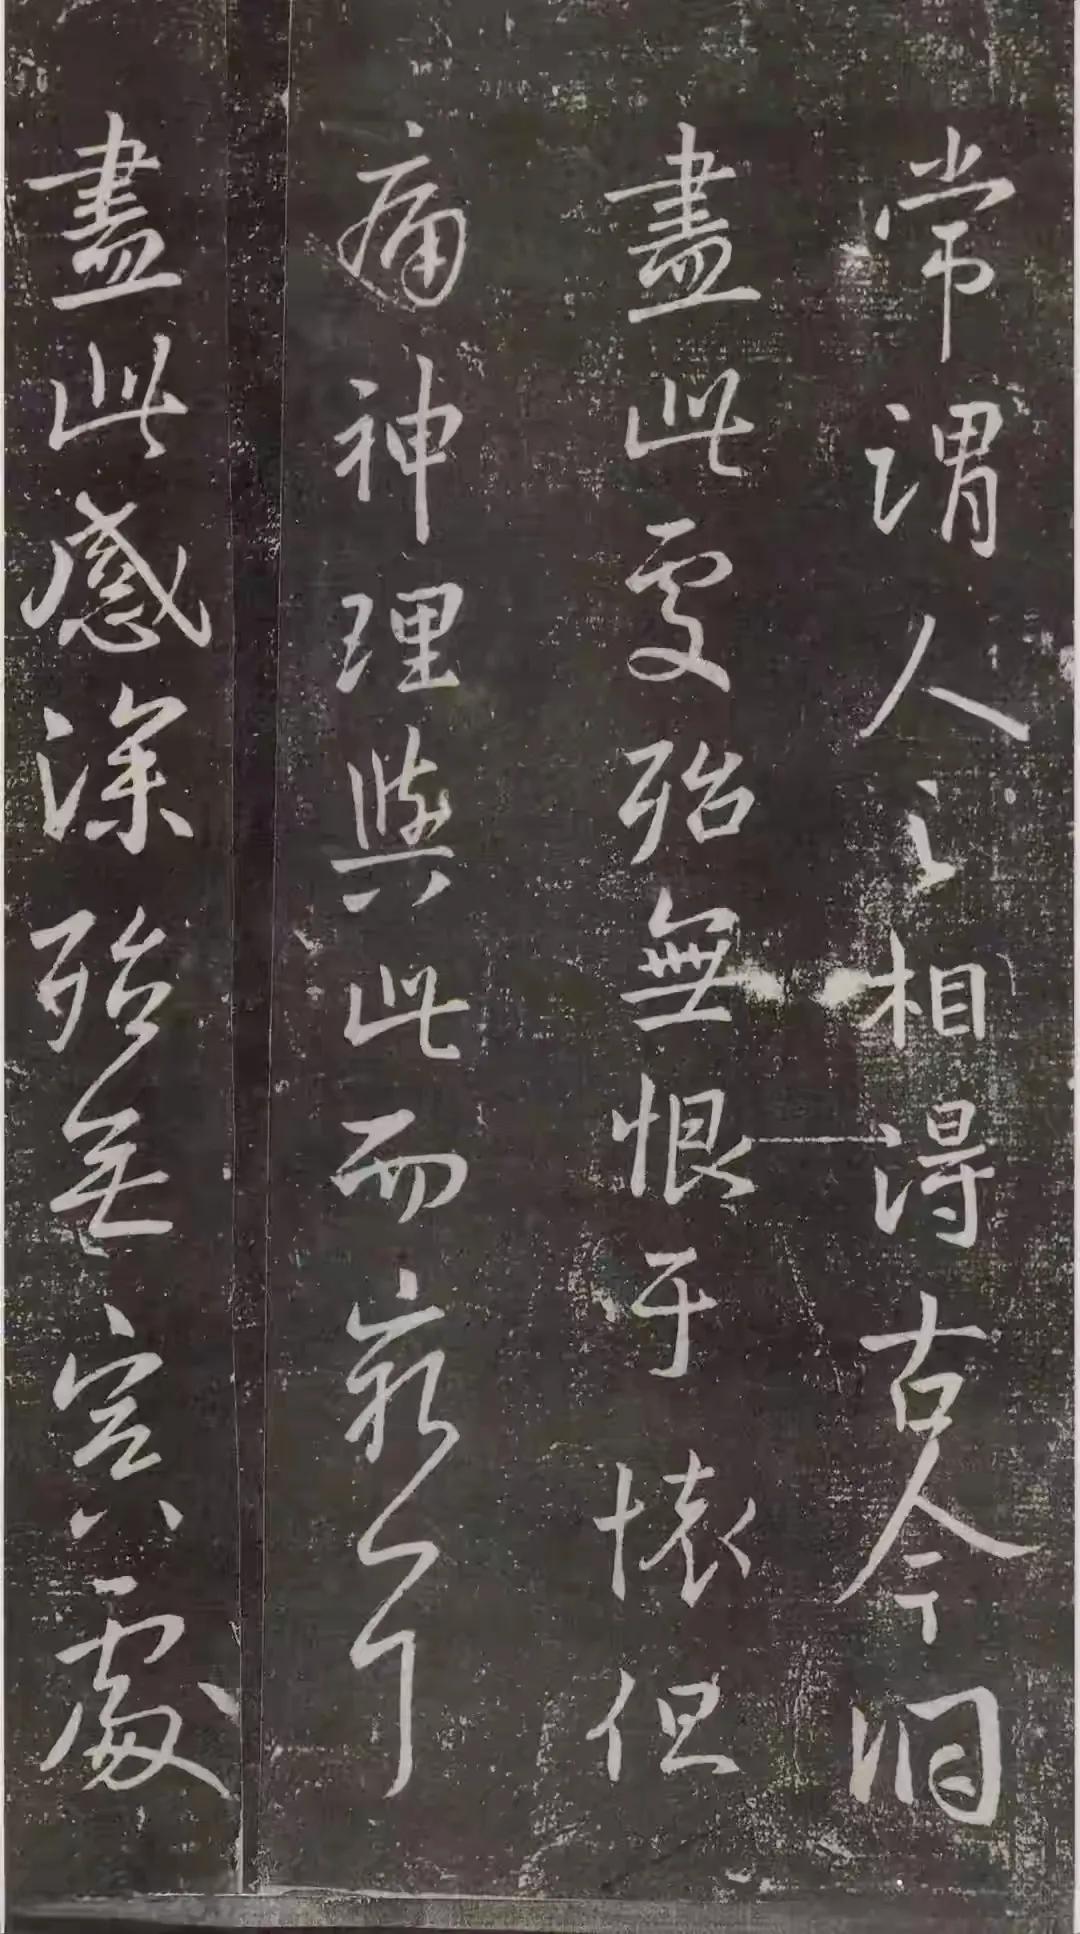 常謂人之相得古今洞
盡此處殆無恨于懷但
痛神理與此而窮耳
盡此感深殆無寘處